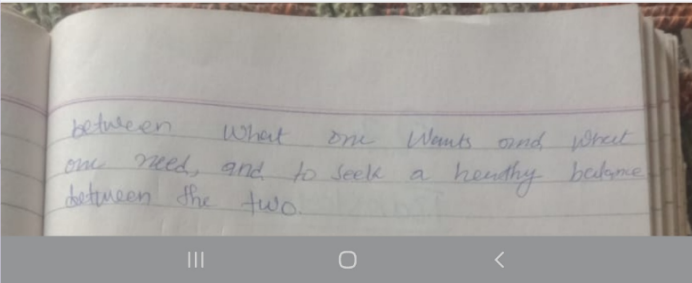 between what one wants and what
one need, and to seek a healthy balance
between the two.